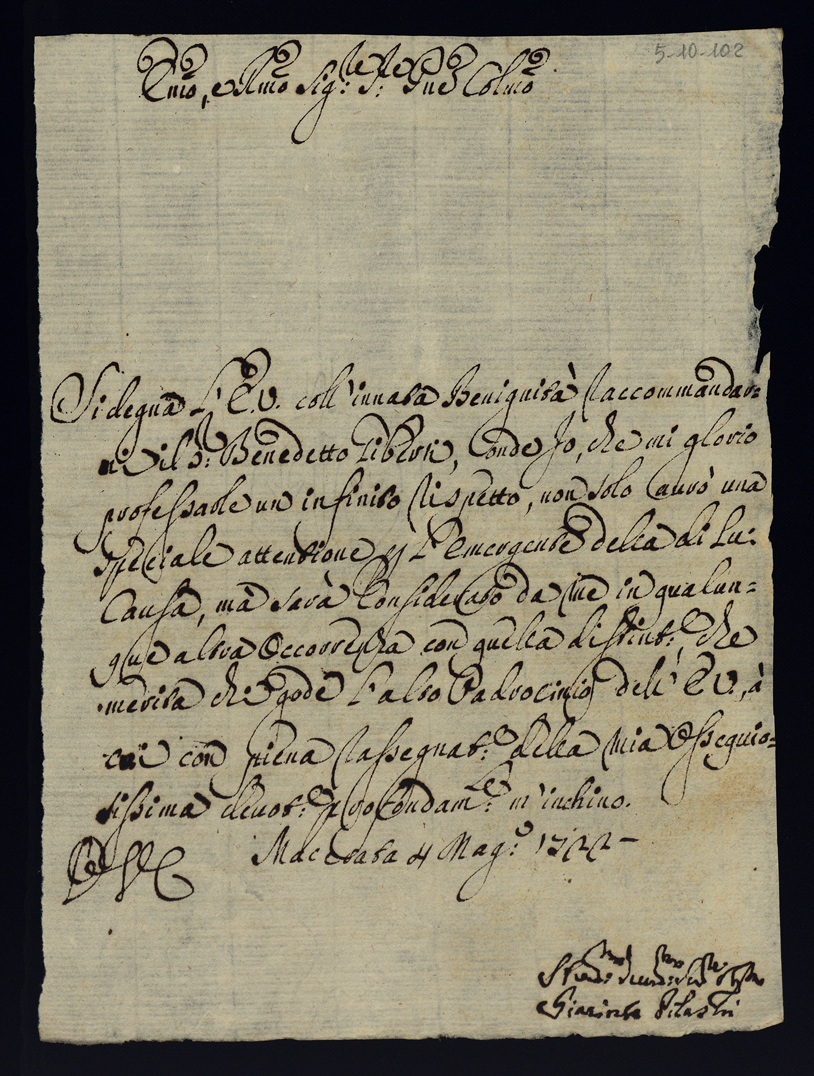 5-10-102
Emo, e Rmo Sig.re Sre Pne Colmo
Si degna l'E.V. coll'innata Benignità raccommandar=
mi il Sr. Benedetto Liberti, onde Io, che mi glorio
professarle un infinito rispetto, non solo aurò una
speciale attentione p l'Emergente della di Lui
Causa, mà sarà Considerato da me in qualun=
que altra Occorrenza con quella distint.e, che
merita chi gode l'alto Padrocinio dell'E.V., à
cui con piena rassegnat.e della mia Ossequio=
sissima devot.e profondam.te m'inchino.
Macerata 4 Mag.o 1722
Giacinto Pilastri